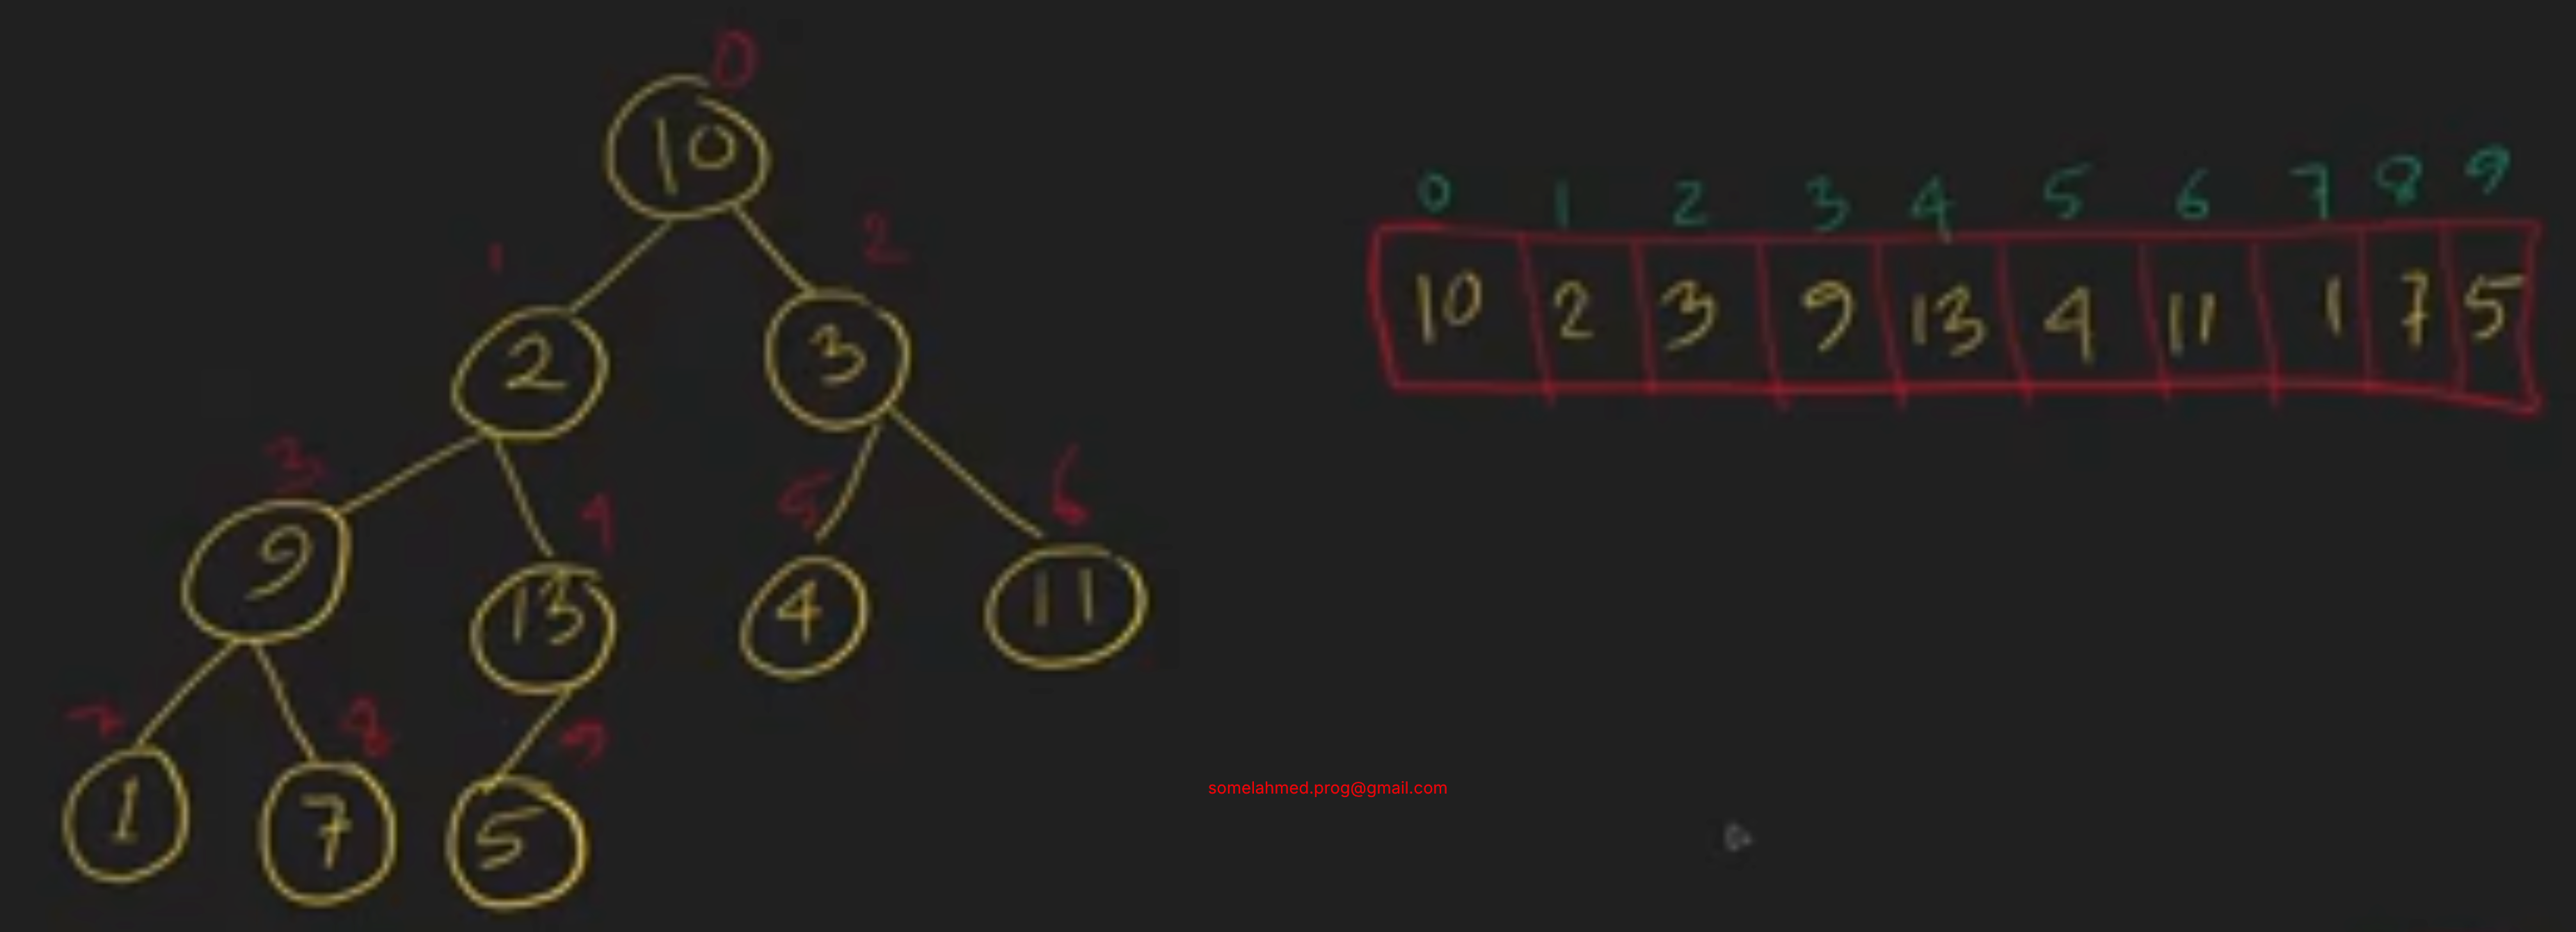 0
10
1 2
2 3
3 4 5 6
9 13 4 11
7 8 9
1 7 5
0 1 2 3 4 5 6 7 8 9
10 2 3 9 13 4 11 1 7 5
somelahmed.prog@gmail.com